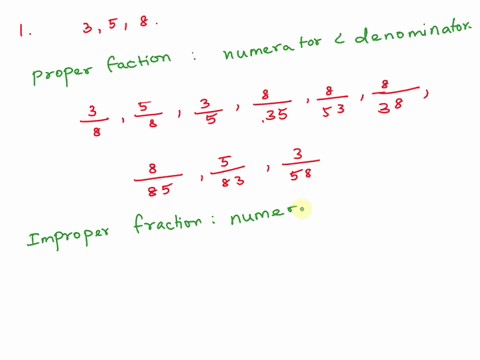 1. 3, 5, 8.
Proper faction : numerator < denominator
3/8, 5/8, 3/5, 8/.35, 8/53, 8/38,
8/85, 5/83, 3/58
Improper fraction : numer